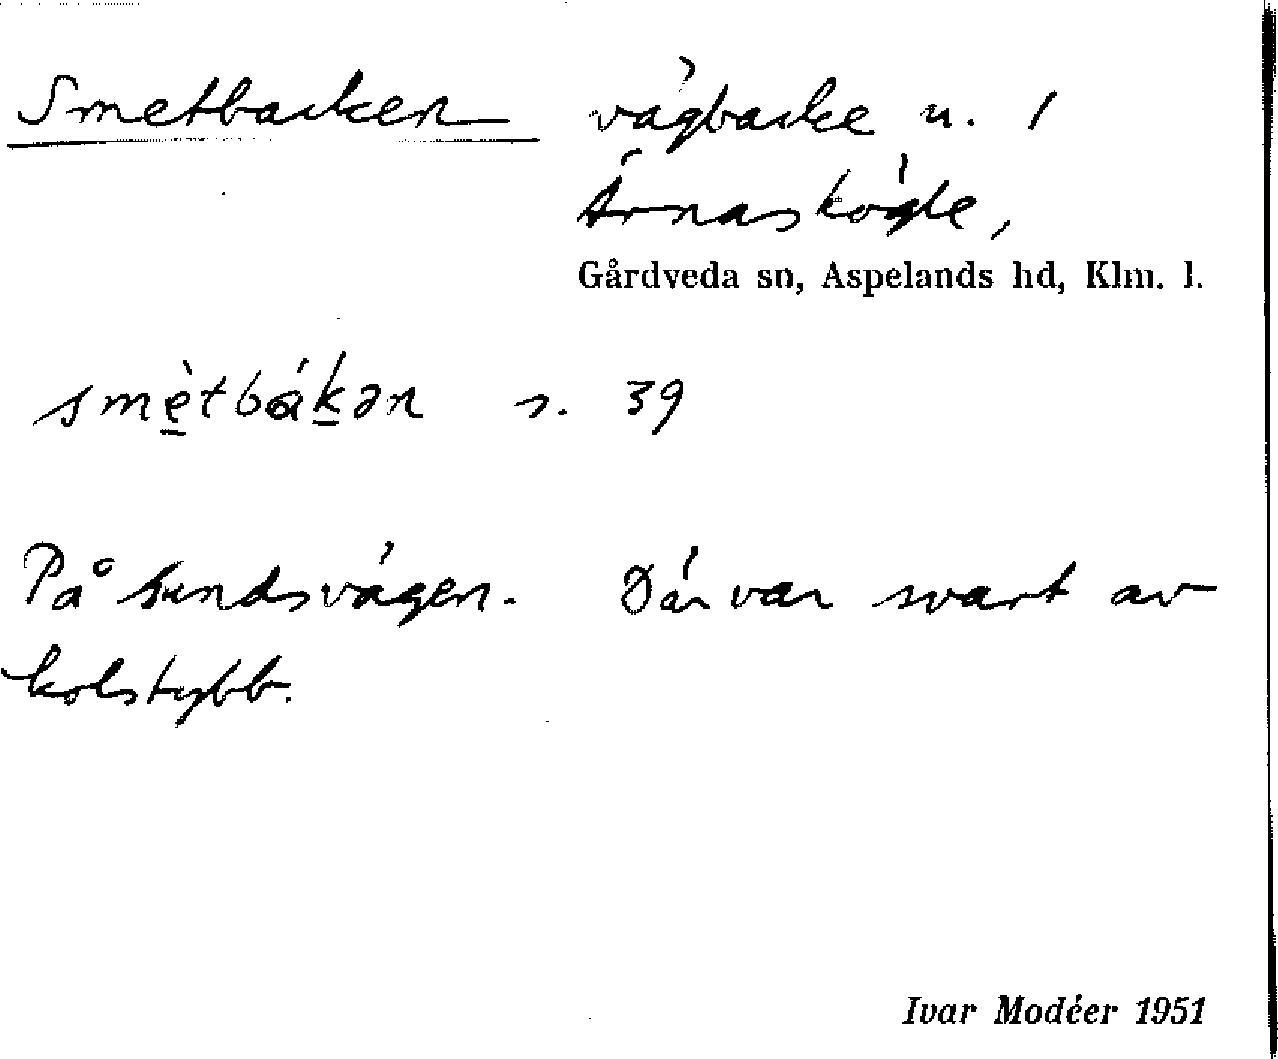 Smetbacken vägbacke u. 1
Ärnaskögle,
Gårdveda sn, Aspelands hd, Klm. l.
smètbákən s. 39
På sundsvägen. Där var svart av
kolstybb.
Ivar Modéer 1951